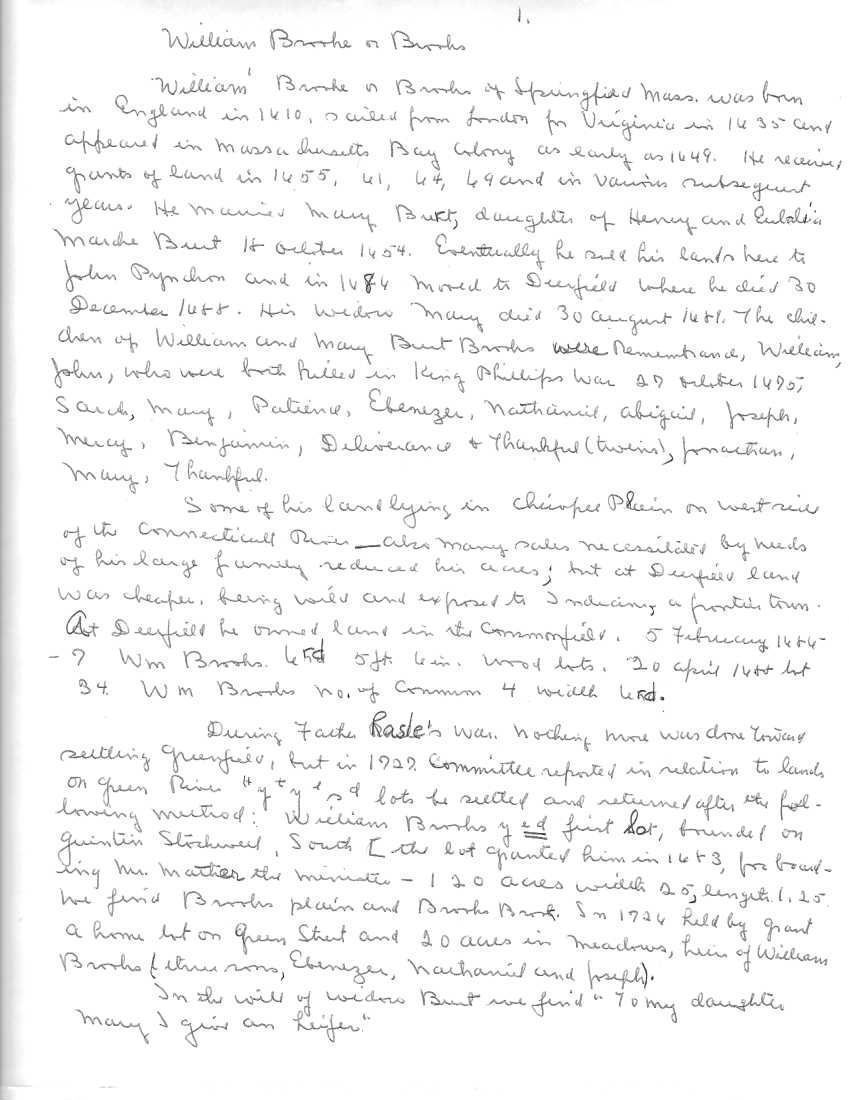 1.
William Brooke or Brooks
William Brooke or Brooks of Springfield Mass. was born
in England in 1610, sailed from London for Virginia in 1635 and
appeared in Massachusetts Bay Colony as early as 1649. He received
grants of land in 1655, 61, 64, 69 and in various subsequent
years. He married Mary Burt, daughter of Henry and Eulalia
Marche Burt 18 October 1654. Eventually he sold his lands here to
John Pynchon and in 1686 moved to Deerfield where he died 30
December 1688. His widow Mary died 30 August 1689. The chil-
dren of William and Mary Burt Brooks were Remembrance, William,
John, who were both killed in King Phillips War 27 October 1675,
Sarah, Mary, Patience, Ebenezer, Nathaniel, Abigail, Joseph,
Mercy, Benjamin, Deliverance & Thankful (twins), Jonathan,
Mary, Thankful.
Some of his land lying in Chicopee Plain on west side
of the Connecticutt River — also many sales necessitated by needs
of his large family reduced his acres; but at Deerfield land
was cheaper, being wild and exposed to Indians, a frontier town.
At Deerfield he owned land in the Commonfield. 5 February 1686-
-7 Wm Brooks. 6rd 5ft 6in. wood lots. 20 April 1688 lot
34 Wm Brooks no. of Common 4 width 6rd.
During Father Rasle's war nothing more was done toward
settling Greenfield, but in 1722 Committee reported in relation to lands
on Green River "yt ye sd lots be settled and returned after the fol-
lowing method: William Brooks y ed first lot, bounded on
Quintin Stockwell, South [the lot granted him in 1683, for board-
ing Mr. Mather the minister - 120 acres width 25, length 1.25.
We find Brooks plain and Brooks Brook. In 1726 held by grant
a home lot on Green Street and 20 acres in meadows, heirs of William
Brooks (three sons, Ebenezer, Nathaniel and Joseph).
In the will of widow Burt we find "To my daughter
Mary I give an heifer."